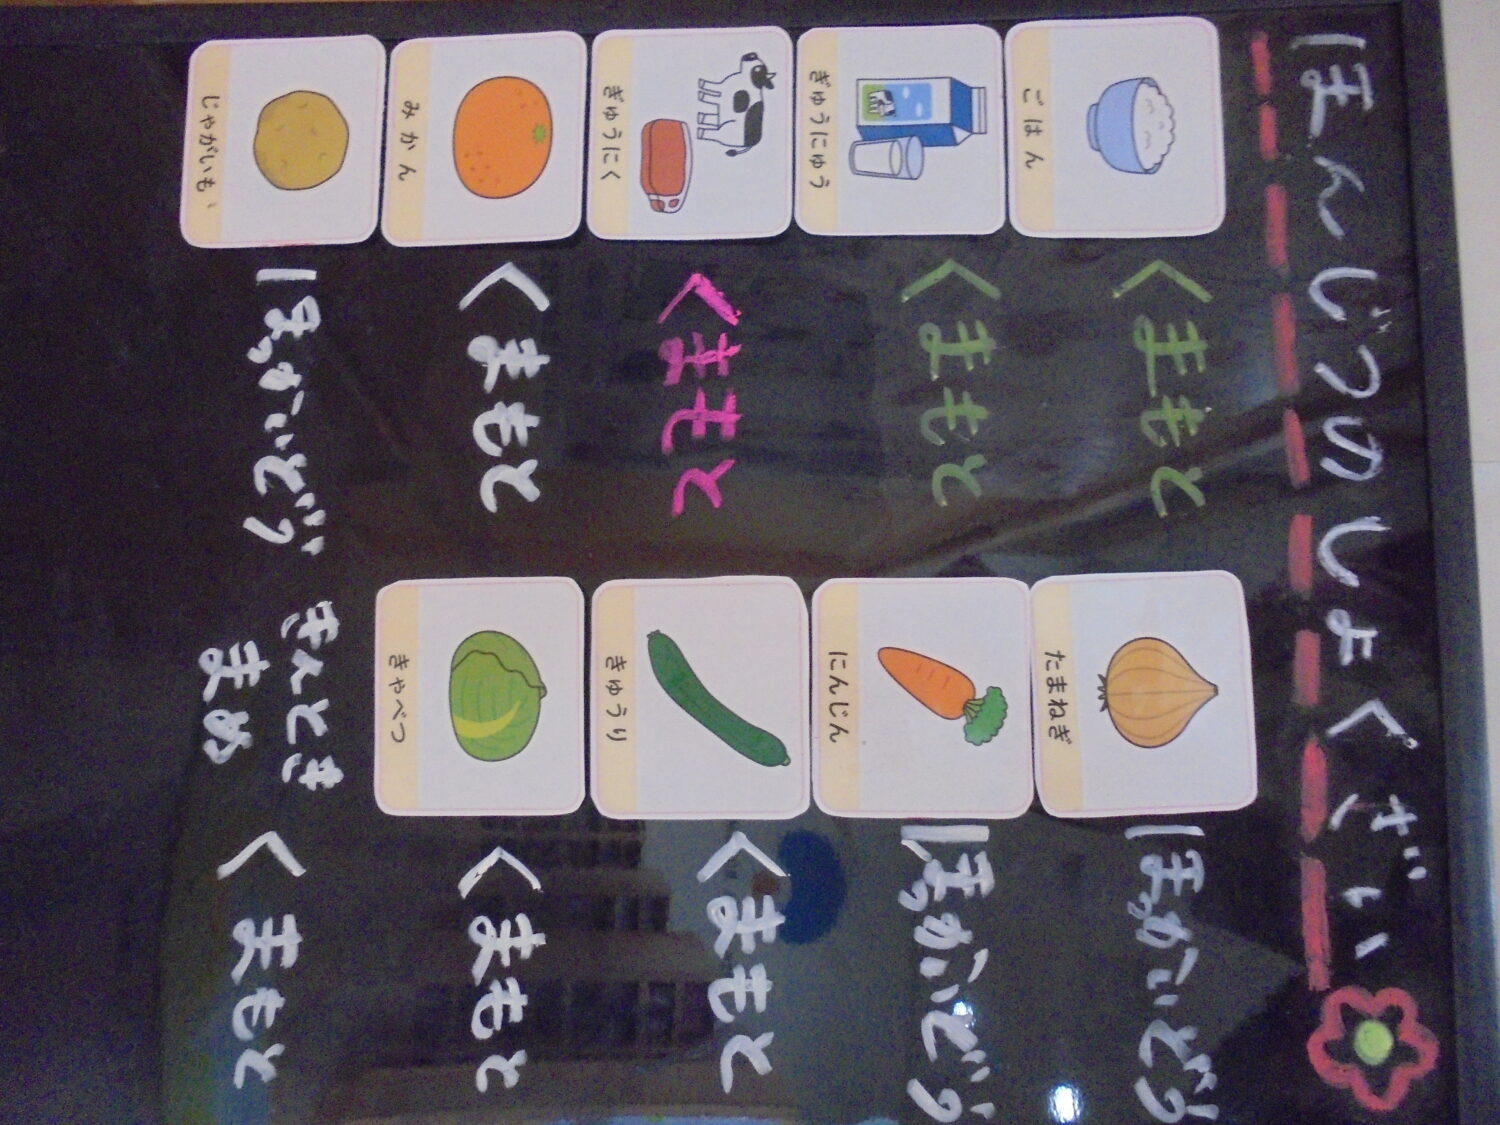 ほんじつのしょくざい
ごはん くまもと たまねぎ ほっかいどう
ぎゅうにゅう くまもと にんじん ほっかいどう
ぎゅうにく くまもと きゅうり くまもと
みかん くまもと きゃべつ くまもと
じゃがいも ほっかいどう きんとき
まめ くまもと